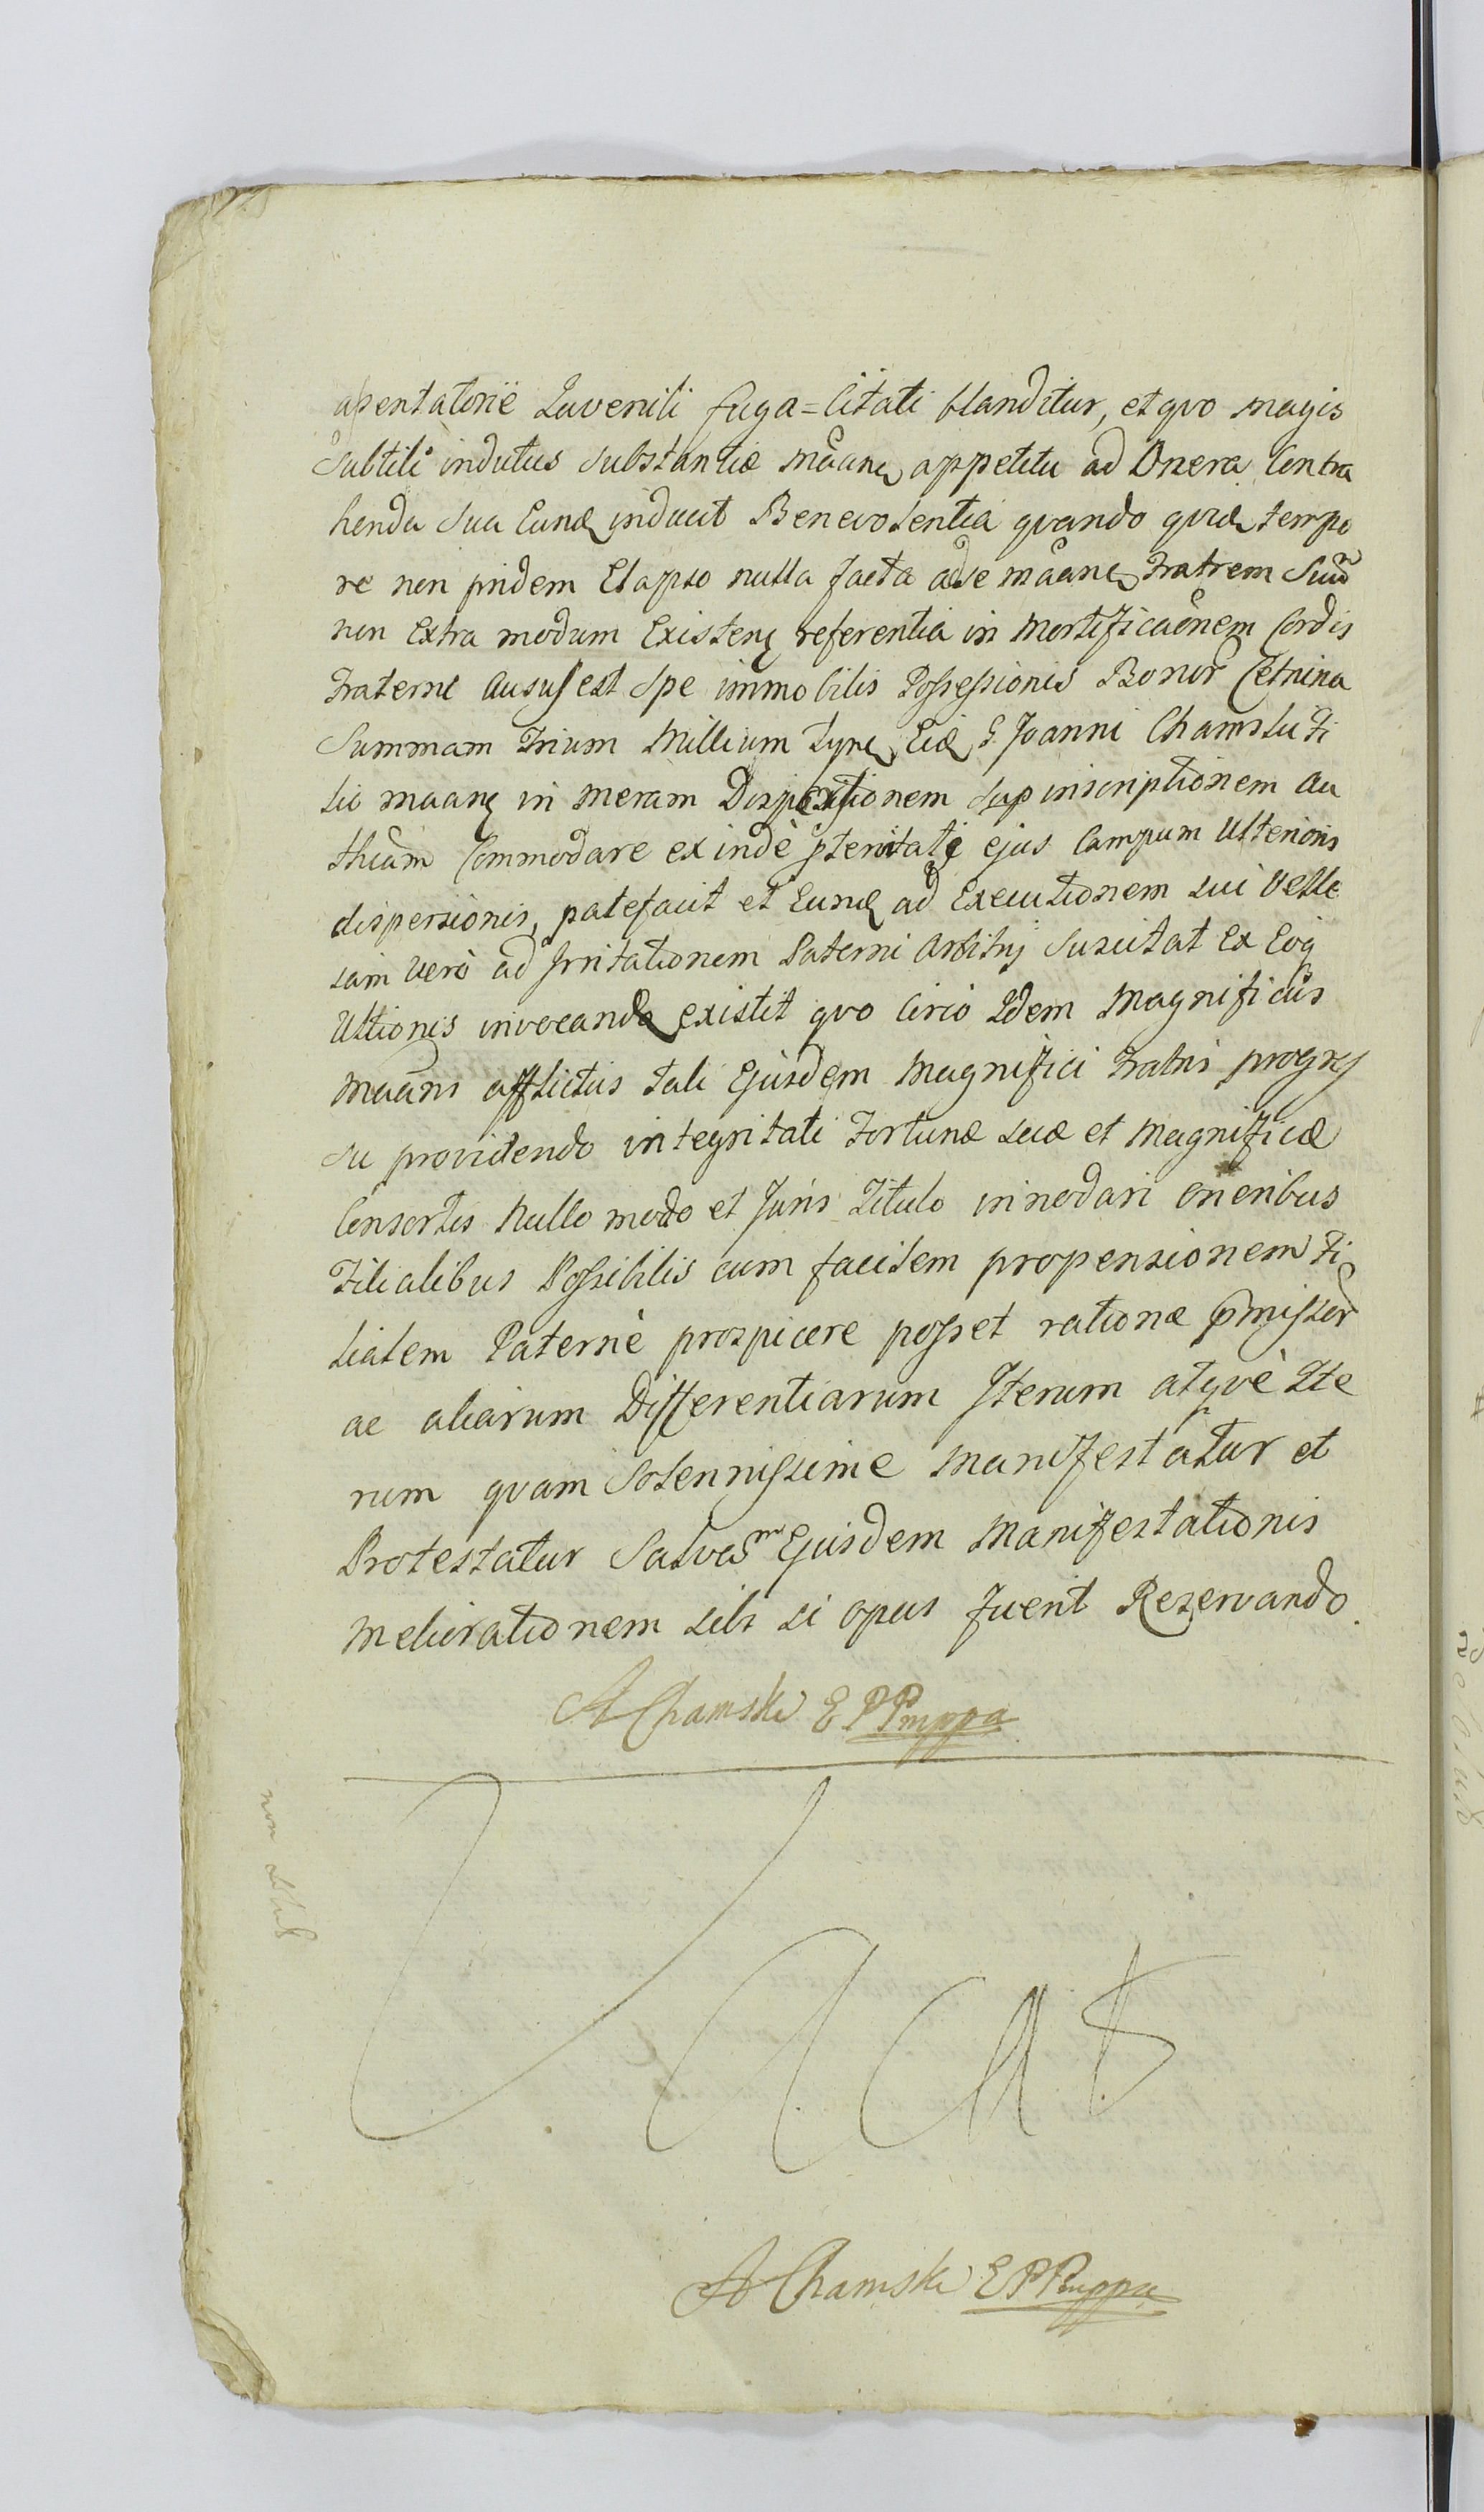 assentatorië Iuvenili fuga=Citati blanditur, et qvo magis
Subtili indutus Substantiæ mãane appetitu ad Onera Contra
henda Sua Eund inducit Benevolentia qvando qvid tempo
re non pridem Elapso nulla facta ad se mãane Fratrem Suũ
non Extra modum Existen referentia in Mortificaõnem Cordis
Fraterni Ausus est Spe immobilis Possessionis Bonor Cetnina
Summam Trium Millium Tyn Eid G. Joanni Chamski Fi
lio maane in meram Dispositionem Sup inscriptionem Au
thĩam Commodare ex inde ejus Campum Ulterioris
dispersionis, patefacit et Eund ad Executionem sui Velle
sam Vero ad Irritationem Paterni Arbitrij Suscitat Ex Eoq
Ultionis invocanda existit qvo Circo Idem Magnificus
mãans afflictus tali Ejusdem Magnifici Fratris progres
su providendo integritati Fortunæ suæ et Magnificæ
Consortis Nullo modo et Juris Titulo innodari oneribus
Filialibus Possibilis cum facilem propensionem Fi
lialem Paternè prospicere posset rationæ p̃missor
ac aliarum Differentiarum Iterum atqvè Ite
rum qvam Solennissime Manifestatur et
Protestatur Salvam Ejusdem Manifestationis
Meliorationem sibi si opus fuerit Reservando.
A Chamski E P P mppa
Vacat
A Chamski E P P mppa